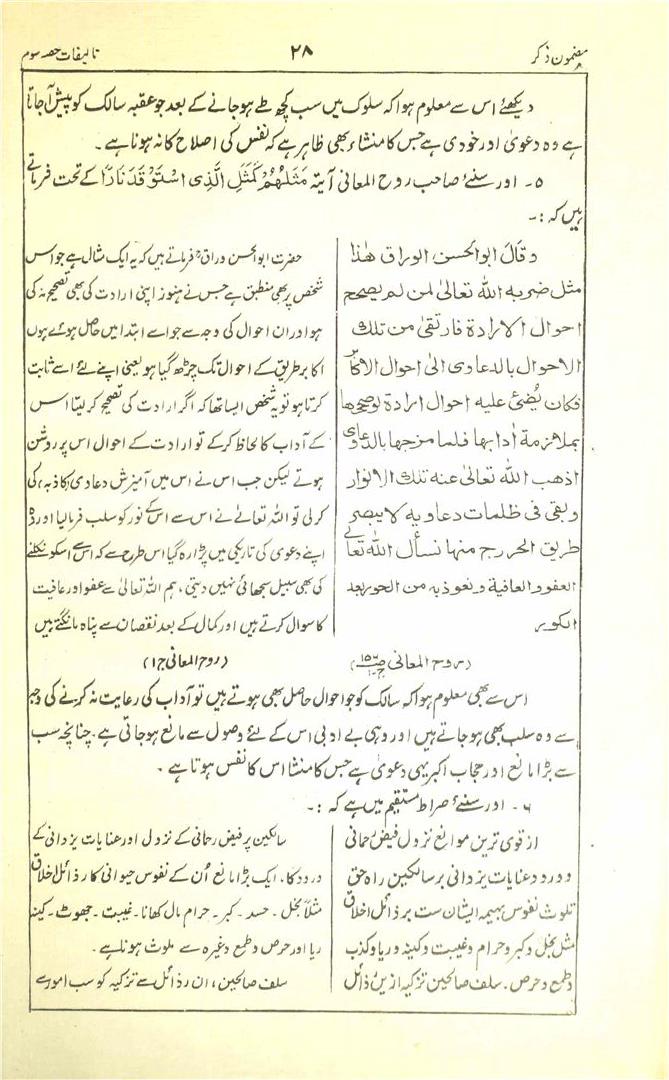 مضمون ذکر
۲۸
تالیفات حصہ سوم
دیکھئے اس سے معلوم ہوا کہ سلوک میں سب کچھ طے ہو جانے کے بعد جو عقبہ سالک کو پیش آجاتا
ہے وہ دعویٰ اور خودی ہے جس کا منشاء بھی ظاہر ہے کہ نفس کی اصلاح کا نہ ہونا ہے۔
۵۔ اور سنئے صاحب روح المعانی آیۃ مَثَلُهُمْ كَمَثَلِ الَّذِی اسْتَوْقَدَ نَارًا کے تحت فرماتے
ہیں کہ :۔
وقال ابوالحسن الوراق هذا
مثل ضربه الله تعالیٰ لمن لم یصحح
احوال الارادة فارتقی من تلك
الاحوال بالدعاوی الی احوال الاکابر
فکان یُضئ علیه احوال ارادة لوصححها
بملازمة اٰدابها فلما مزجها بالدعاوی
اذهب الله تعالیٰ عنه تلك الانوار
وبقی فی ظلمات دعاویه لایبصر
طریق الخروج منها نسأل الله تعالیٰ
العفو والعافیة ونعوذ به من الحور بعد
الکور
(روح المعانی ص۱۵۶ ج۱)
حضرت ابوالحسن وراقؒ فرماتے ہیں کہ یہ ایک مثال ہے جو اس
شخص پر بھی منطبق ہے جس نے ہنوز اپنی ارادت کی بھی تصحیح نہ کی
ہو اور ان احوال کی وجہ سے جو اسے ابتدا میں حاصل ہوئے ہوں
اکابر طریق کے احوال تک چڑھ گیا ہو یعنی اپنے لئے اسے ثابت
کرتا ہو تو یہ شخص ایسا تھا کہ اگر ارادت کی تصحیح کر لیتا اس
کے آداب کا لحاظ کر کے تو ارادت کے احوال اس پر روشن
ہوتے لیکن جب اس نے اس میں آمیزش دعاوی (کاذبہ) کی
کر لی تو اللہ تعالےٰ نے اس سے اس کے نور کو سلب فرمالیا اور وہ
اپنے دعویٰ کی تاریکی میں پڑا رہ گیا اس طرح سے کہ اس سے اسکو نکلنے
کی بھی سبیل سجھائی نہیں دیتی، ہم اللہ تعالیٰ سے عفو اور عافیت
کا سوال کرتے ہیں اور کمال کے بعد نقصان سے پناہ مانگتے ہیں
(روح المعانی ج۱)
اس سے بھی معلوم ہوا کہ سالک کو جو احوال حاصل بھی ہوتے ہیں تو آداب کی رعایت نہ کرنے کی وجہ
سے وہ سلب بھی ہو جاتے ہیں اور وہی بے ادبی اس کے لئے وصول سے مانع ہو جاتی ہے۔ چنانچہ سب
سے بڑا مانع اور حجاب اکبر یہی دعویٰ ہے جس کا منشا اس کا نفس ہوتا ہے۔
۶۔ اور سنئے صراط مستقیم میں ہے کہ :۔
از قوی ترین موانع نزول فیض رحمانی
و ورود عنایات یزدانی بر سالکین راہ حق
تلوث نفوس بہیمہ ایشان ست بر ذائل اخلاق
مثل بخل و کبر و حرام و غیبت و کینہ و ریا و کذب
و طمع و حرص۔ سلف صالحین تزکیہ ازیں رذائل
سالکین پر فیض رحمانی کے نزول اور عنایات یزدانی کے
ورود کا، ایک بڑا مانع اُن کے نفوس حیوانی کا رذائل اخلاق
مثلاً بخل۔ حسد۔ کبر۔ حرام مال کھانا۔ غیبت۔ جھوٹ۔ کینہ
ریا اور حرص و طمع وغیرہ سے ملوث ہونا ہے۔
سلف صالحین، ان رذائل سے تزکیہ کو سب امور سے